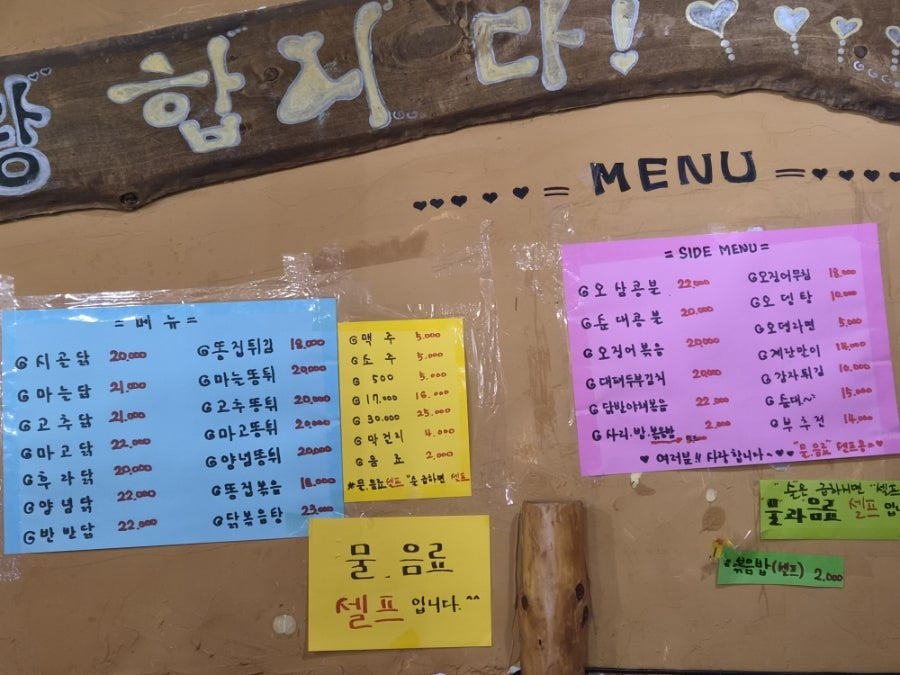 랑 합니다!
= MENU =
= 메뉴 =
시골닭 20,000
마늘닭 21,000
고추닭 21,000
마고닭 22,000
후라닭 20,000
양념닭 22,000
반반닭 22,000
똥집튀김 18,000
마늘똥튀 20,000
고추똥튀 20,000
마고똥튀 20,000
양념똥튀 20,000
똥집볶음 18,000
닭볶음탕 23,000
맥주 5,000
소주 5,000
500 5,000
17,00 16,000
30,00 25,000
막걸리 4,000
음료 2,000
#물.음료셀프 "손 급하면 셀프
물.음료
셀프입니다.^^
= SIDE MENU =
오삼콩불 22,000
순대콩불 20,000
오징어볶음 20,000
대패두부김치 20,000
닭발야채볶음 22,000
사리.밥.볶음밥 2,000
오징어무침 18,000
오뎅탕 10,000
오뎅라면 5,000
계란말이 15,000
감자튀김 10,000
순대~ 15,000
부추전 14,000
♥ 여러분!! 사랑합니다~♥♥ "물.음료" 셀프용=♥
"손은 급하시면 "셀프
물과음료 셀프입니
볶음밥(셀프) 2,000